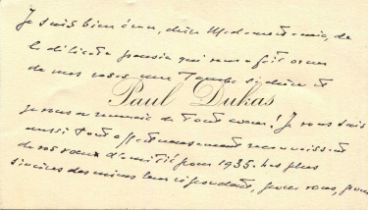 Je suis bien ému, chère Madame et amie, de
la délicate pensée qui vous a fait orner
de mes roses une Tombe si chère et
Paul Dukas
je vous remercie de tout cœur! Je vous suis
aussi tout affectueusement reconnaissant
de vos vœux d'amitié pour 1935. Les plus
sincères des miens leur répondent, pour vous, pour